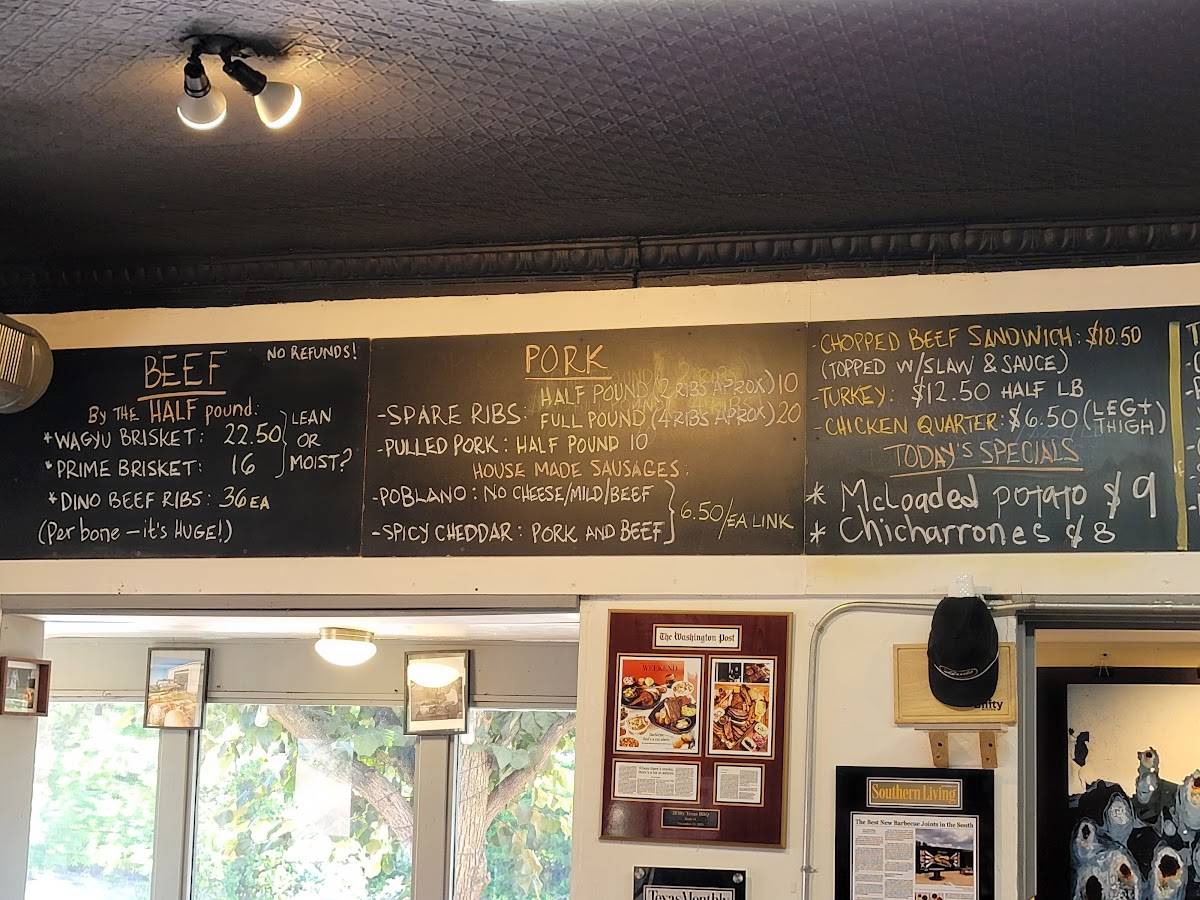 BEEF
NO REFUNDS!
By THE HALF pound:
*WAGYU BRISKET: 22.50
*PRIME BRISKET: 16
LEAN
OR
MOIST?
*DINO BEEF RIBS: 36 EA
(Per bone - it's HUGE!)
PORK
HALF POUND (2 RIBS APROX) 10
-SPARE RIBS: FULL POUND (4 RIBS APROX) 20
-PULLED PORK: HALF POUND 10
HOUSE MADE SAUSAGES:
-POBLANO: NO CHEESE/MILD/BEEF
-SPICY CHEDDAR: PORK AND BEEF
6.50/EA LINK
-CHOPPED BEEF SANDWICH: $10.50
(TOPPED W/SLAW & SAUCE)
-TURKEY: $12.50 HALF LB
-CHICKEN QUARTER: $6.50 (LEG+
THIGH)
TODAY'S SPECIALS
* McLoaded potato $9
* Chicharrones $8
The Washington Post
WEEKEND
Southern Living
The Best New Barbecue Joints in the South
Texas Monthly